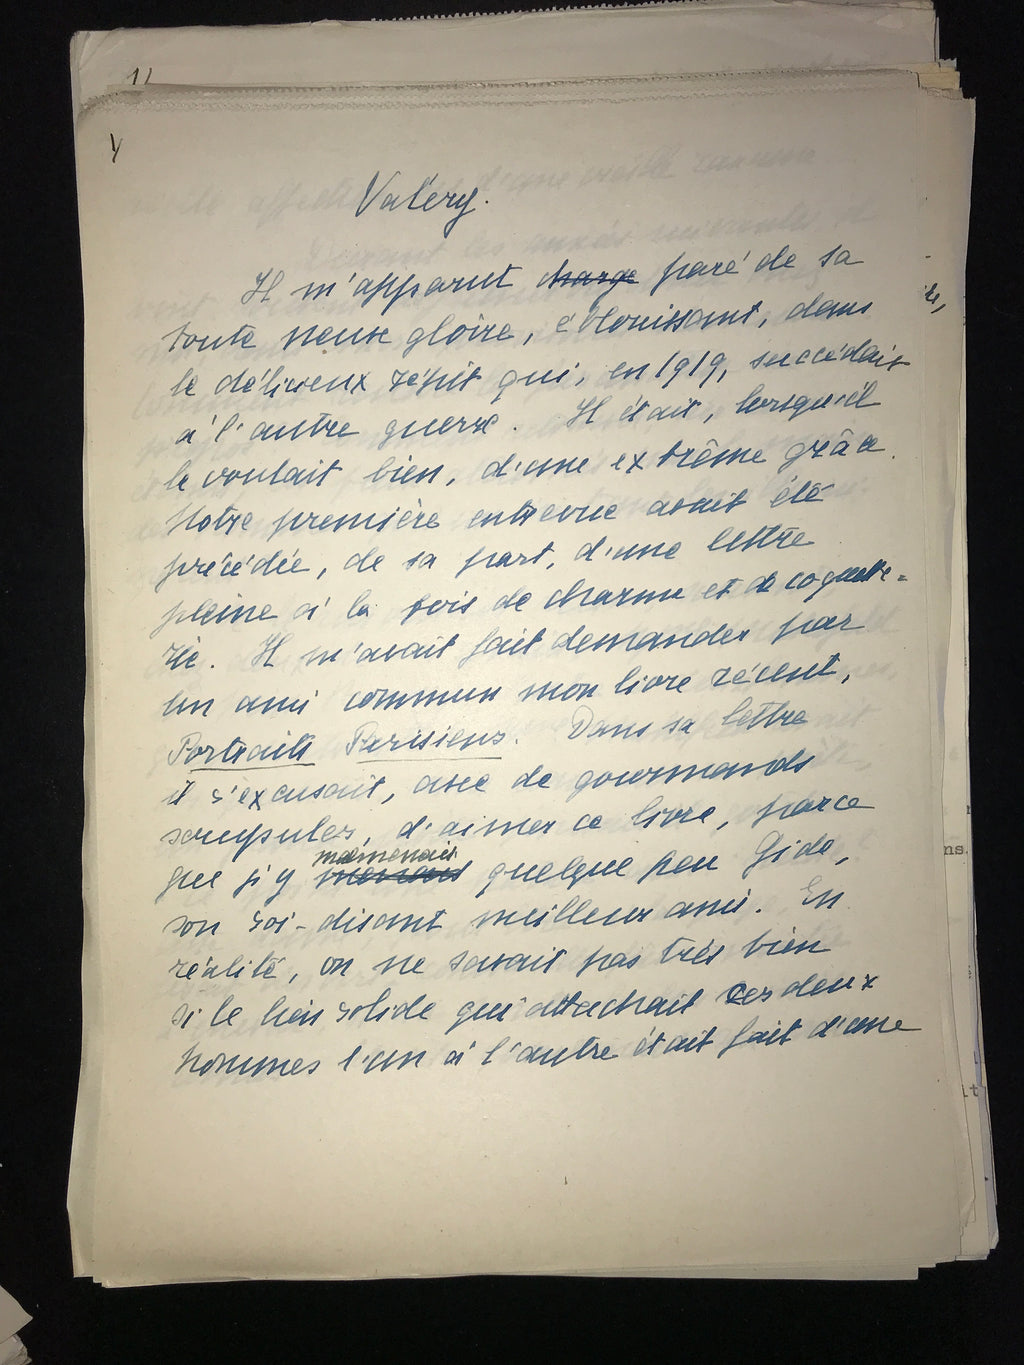 Valéry.
Il m'apparut charge paré de sa
toute neuve gloire, éblouissant, dans
le délicieux répit qui, en 1919, succédait
à l'autre guerre. Il était, lorsqu'il
le voulait bien, d'une extrême grâce.
Notre première entrevue avait été
précédée, de sa part, d'une lettre
pleine à la fois de charme et de coquette-
rie. Il m'avait fait demander par
un ami commun mon livre récent,
Portraits Parisiens. Dans sa lettre
il s'excusait, avec de gourmands
scrupules, d'aimer ce livre, parce
malmenais
que j'y quelque peu Gide,
son soi-disant meilleur ami. En
réalité, on ne savait pas très bien
si le lien solide qui attachait ces deux
hommes l'un à l'autre était fait d'une